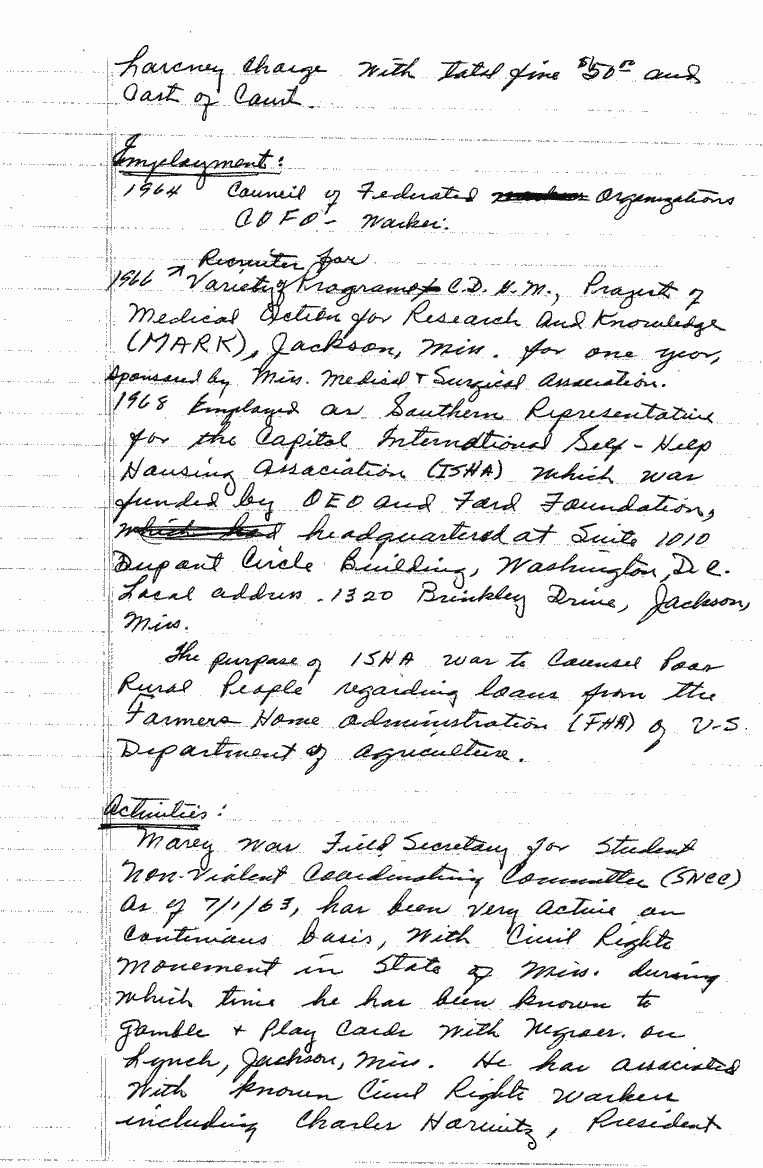 Larcney Charge With total fine $50.00 and
Cost of Court.
Employment:
1964 Council of Federated Organizations
COFO - Worker.
Recruiter for
1966 Variety of Programs C.D.G.M., Project of
Medical Action for Research And Knowledge
(MARK), Jackson, Miss. for one year,
Sponsored by Miss. Medical + Surgical Association.
1968 Employed as Southern Representative
for the Capitol International Self-Help
Housing Association (ISHA) which was
funded by OEO and Ford Foundation,
headquartered at Suite 1010
Dupont Circle Building, Washington, D.C.
Local address. 1320 Brinkley Drive, Jackson,
Miss.
The purpose of ISHA was to Counsel Poor
Rural People regarding loans from the
Farmers Home Administration (FHA) of U.S.
Department of Agriculture.
Activities:
was Field Secretary for Student
Non-Violent Coordinating Committee (SNCC)
As of 7/1/63, has been very active on
Continious basis, With Civil Rights
Movement in State of Miss. during
which time he has been known to
gamble + Play Cards With Negroes. on
Lynch, Jackson, Miss. He has associated
With known Civil Rights Workers
including Charles Horwitz, President